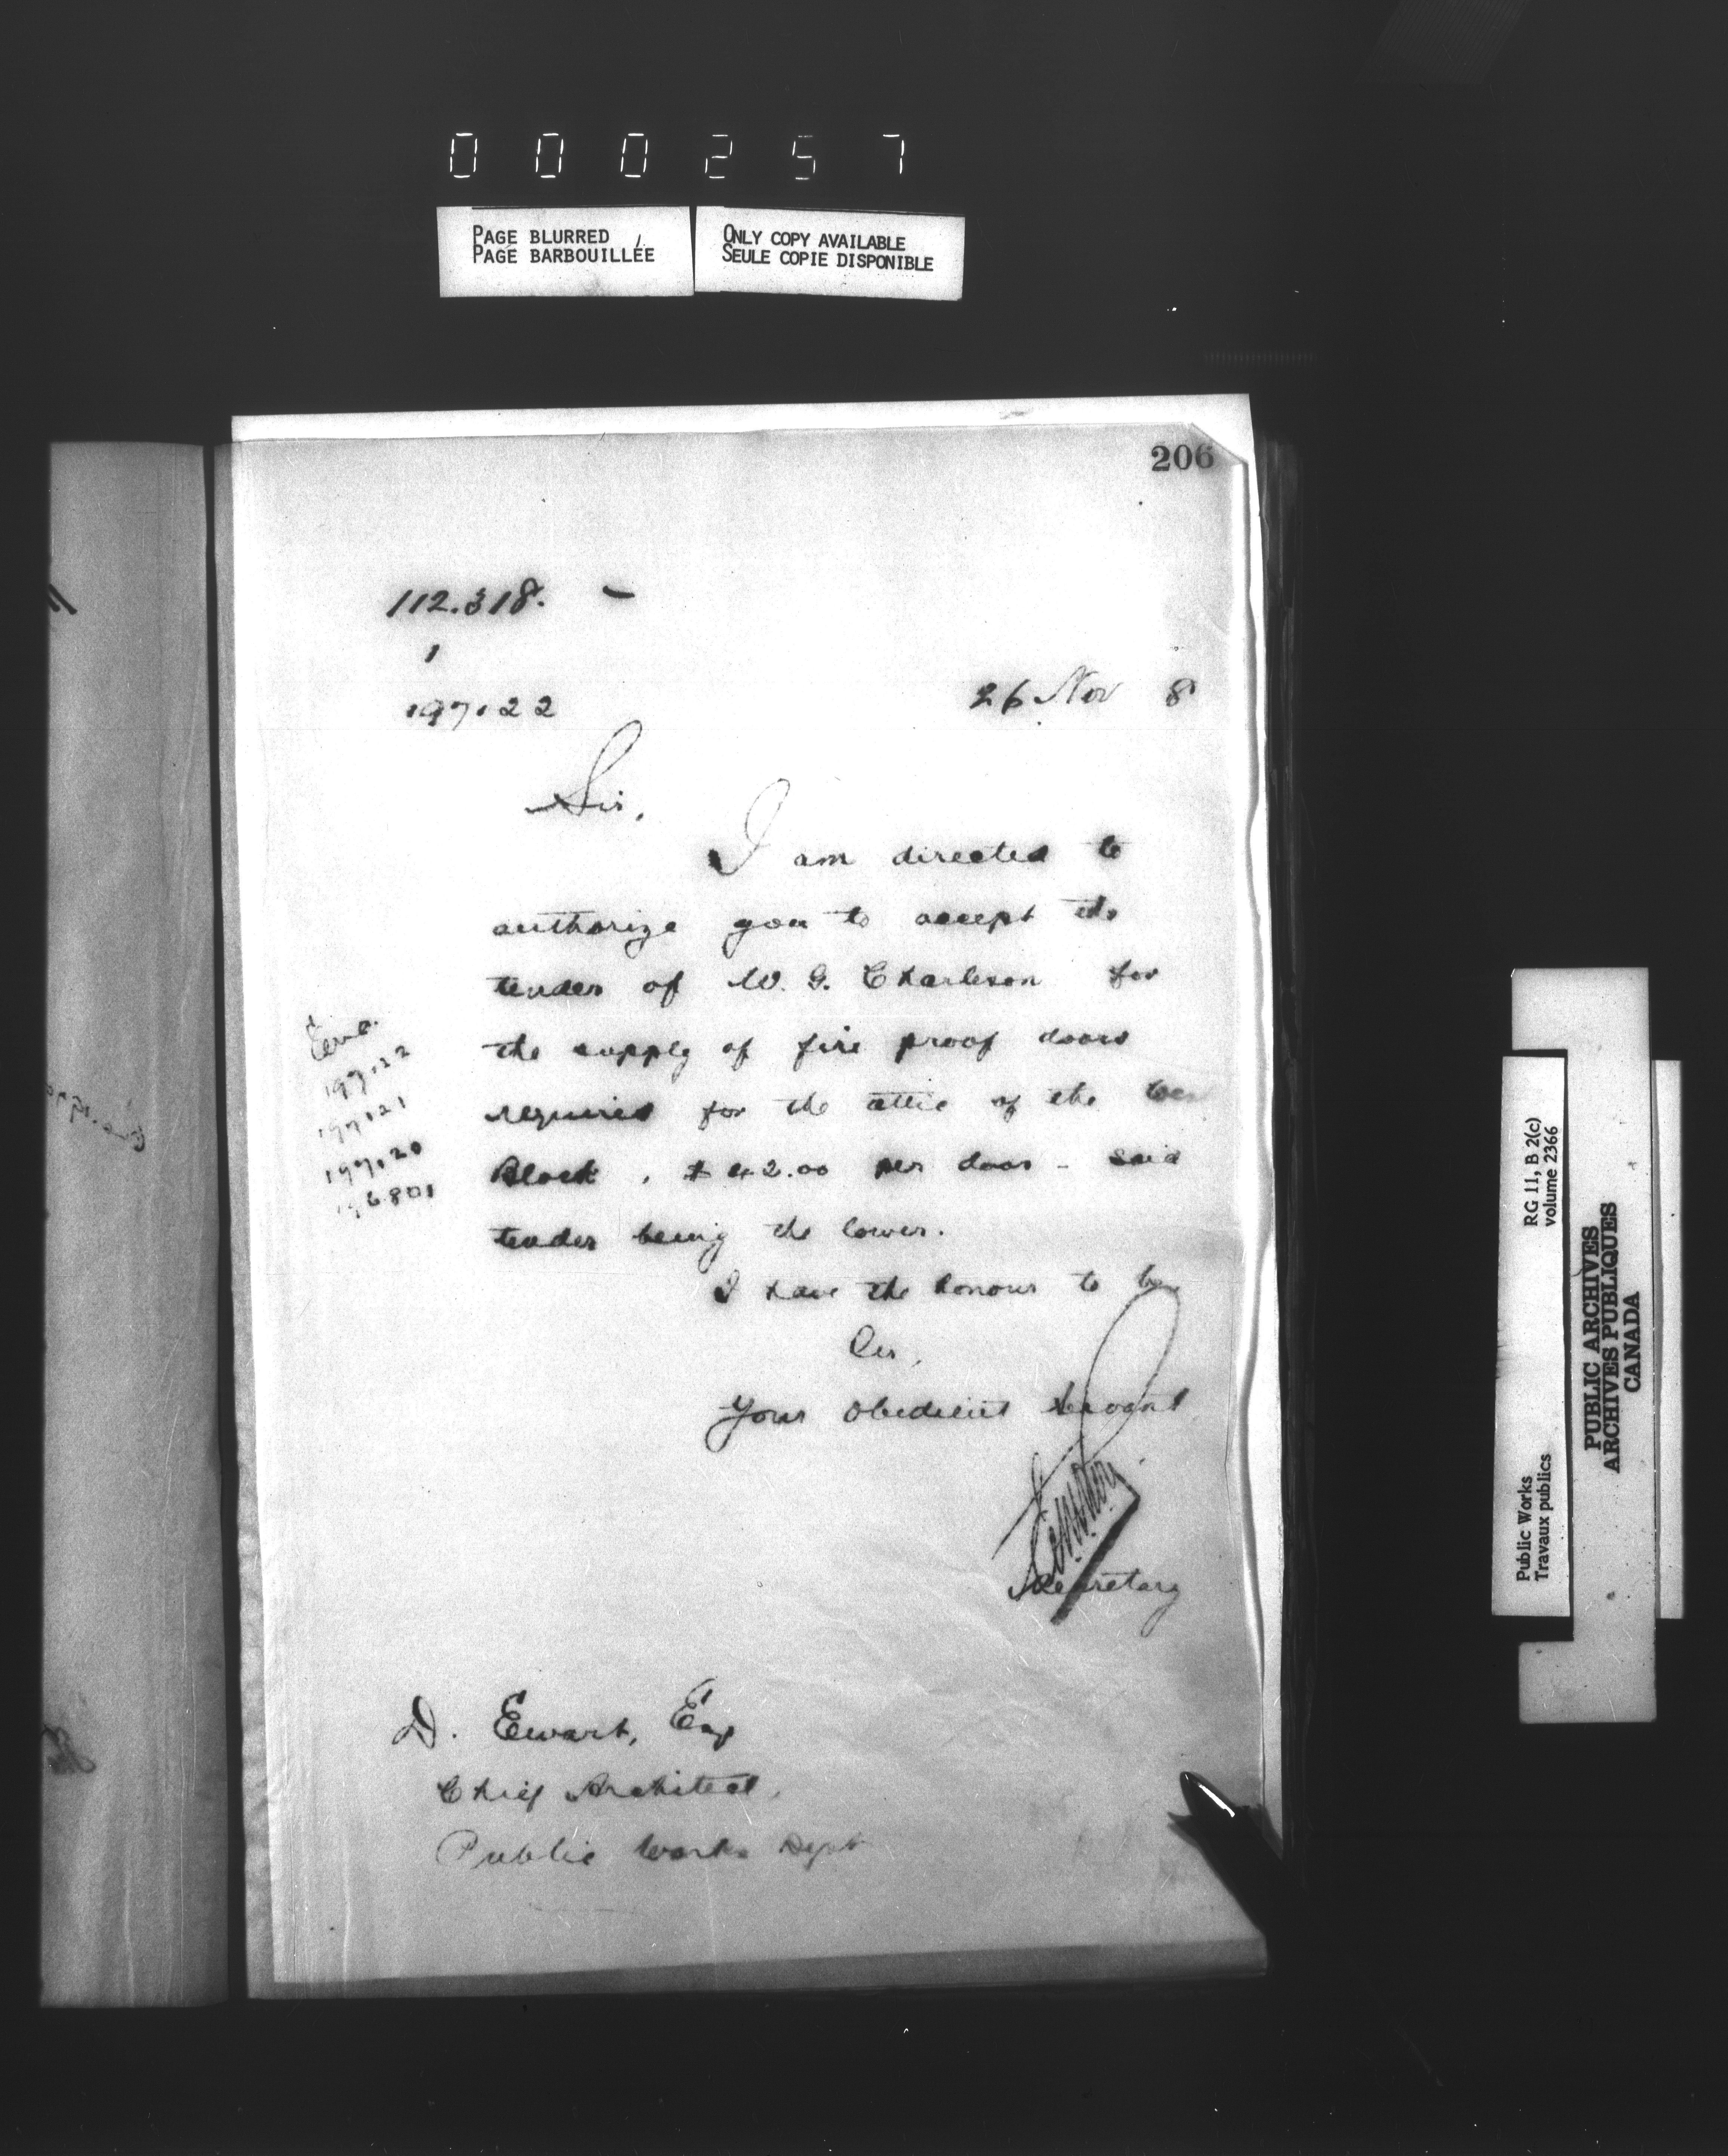 000257
PAGE BLURRED
PAGE BARBOUILLÉE
ONLY COPY AVAILABLE
SEULE COPIE DISPONIBLE
206
112.318. -
1
197.22
26 Nov 8
Sir,
I am directed to
authorize you to accept the
tender of W. G. Charleson for
the supply of fire proof doors
required for the attic of the
Block, $42.00 per door - said
tender being the lower.
I have the honour to be
Sir,
Your Obedient Servant
Secretary
197.22
197.21
197.20
196801
D. Ewart, Esq
Chief Architect,
Public Works Dept
RG 11, B 2(c)
volume 2366
Public Works
Travaux publics
PUBLIC ARCHIVES
ARCHIVES PUBLIQUES
CANADA